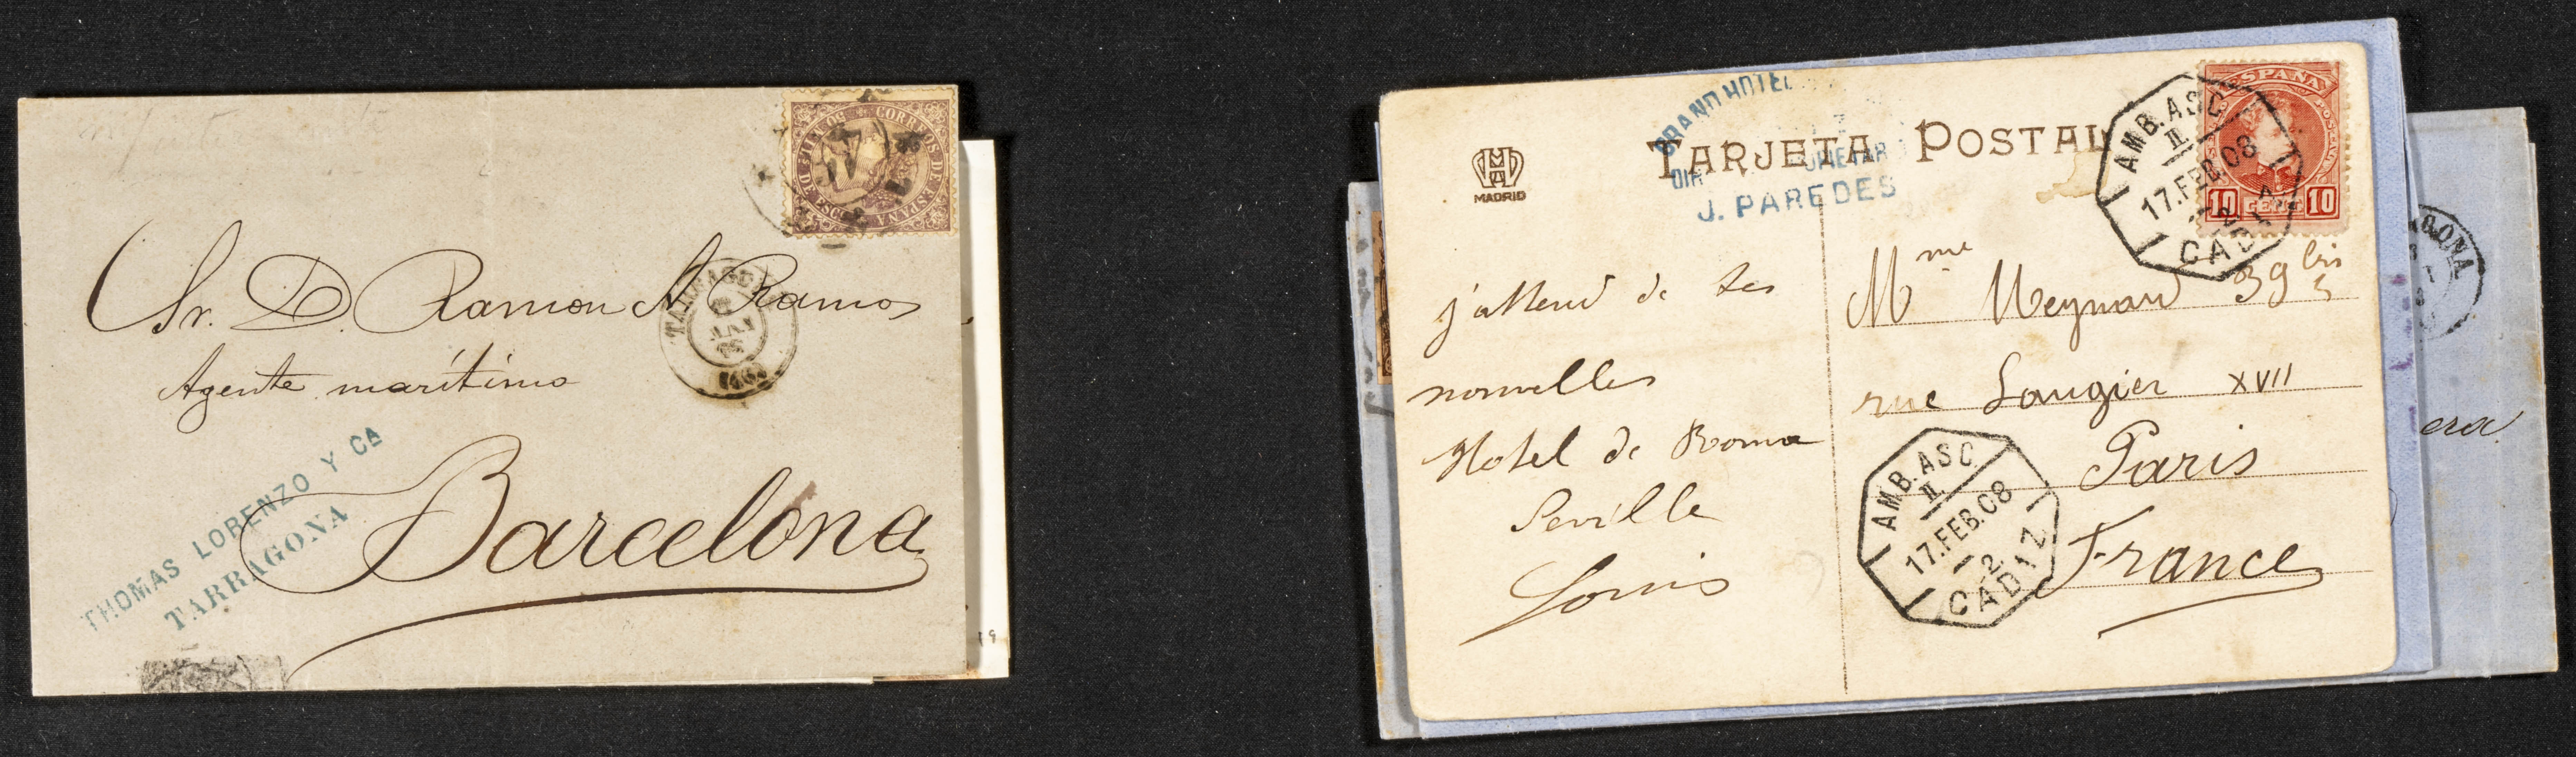 CORREOS DE ESPAÑA
50 MIL. DE ESCº
Sr. D. Ramon A. Ramos
Agente marítimo
Barcelona
TARRAGONA
THOMAS LORENZO Y CA
TARRAGONA
19
GRAND HOTEL
J. PAREDES
TARJETA POSTAL
MADRID
ESPAÑA
10 CENT 10
AMB. ASC
II
17.FEB.08
2
CADIZ
j'attend de tes
nouvelles
Hotel de Roma
Seville
Louis
Mme Meynard 39 bis
rue Laugier XVII
Paris
France
AMB. ASC
II
17.FEB.08
2
CADIZ
AGONA
era